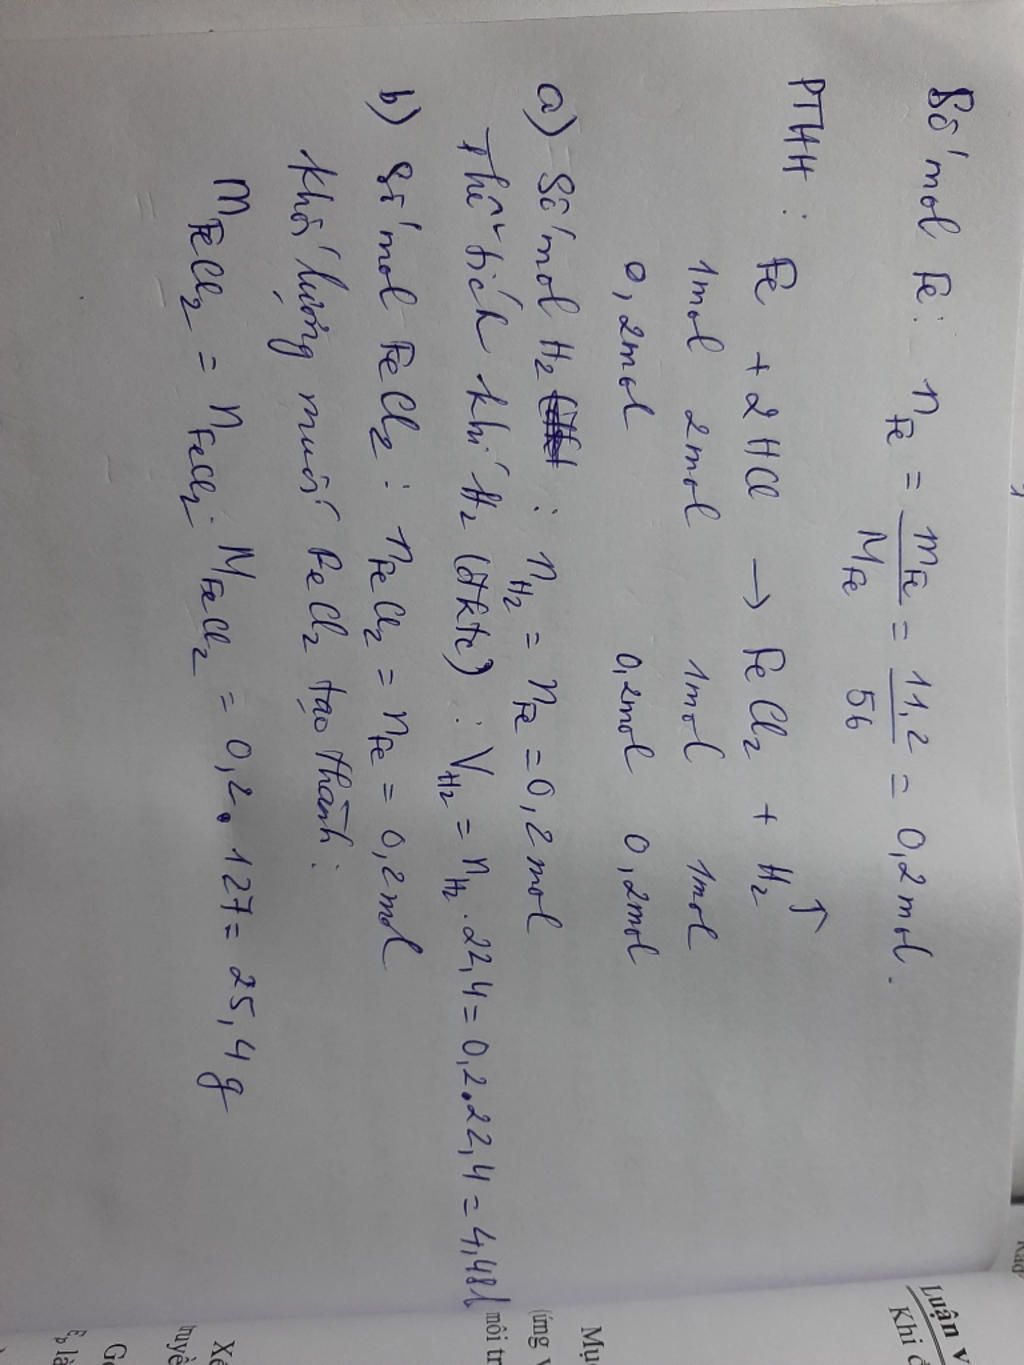 Số mol Fe: nFe = mFe/MFe = 11,2/56 = 0,2 mol.
PTHH: Fe + 2HCl → FeCl2 + H2↑
1mol 2mol 1mol 1mol
0,2mol 0,2mol 0,2mol
a) Số mol H2 : nH2 = nFe = 0,2 mol
Thể tích khí H2 (đktc) : VH2 = nH2 . 22,4 = 0,2.22,4 = 4,48l
b) Số mol FeCl2 : nFeCl2 = nFe = 0,2mol
Khối lượng muối FeCl2 tạo thành :
mFeCl2 = nFeCl2 . MFeCl2 = 0,2.127 = 25,4g
Luận v
Khi
Mục
(ứng v
môi tr
Xé